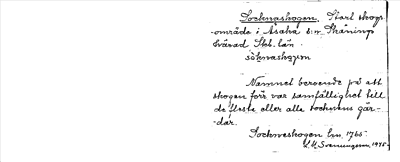 Socknaskogen. Stort skogs-
område i Åsaka s:n Skånings
härad Skb. län.
Namnet beroende på att
skogen förr var samfällighet till
de fleste eller alla socknens går-
dar.
Sockneskogen lm. 1765.
1975